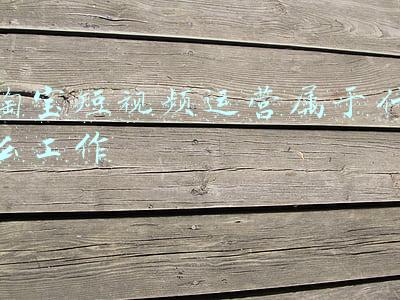 淘宝短视频运营属于什
么工作